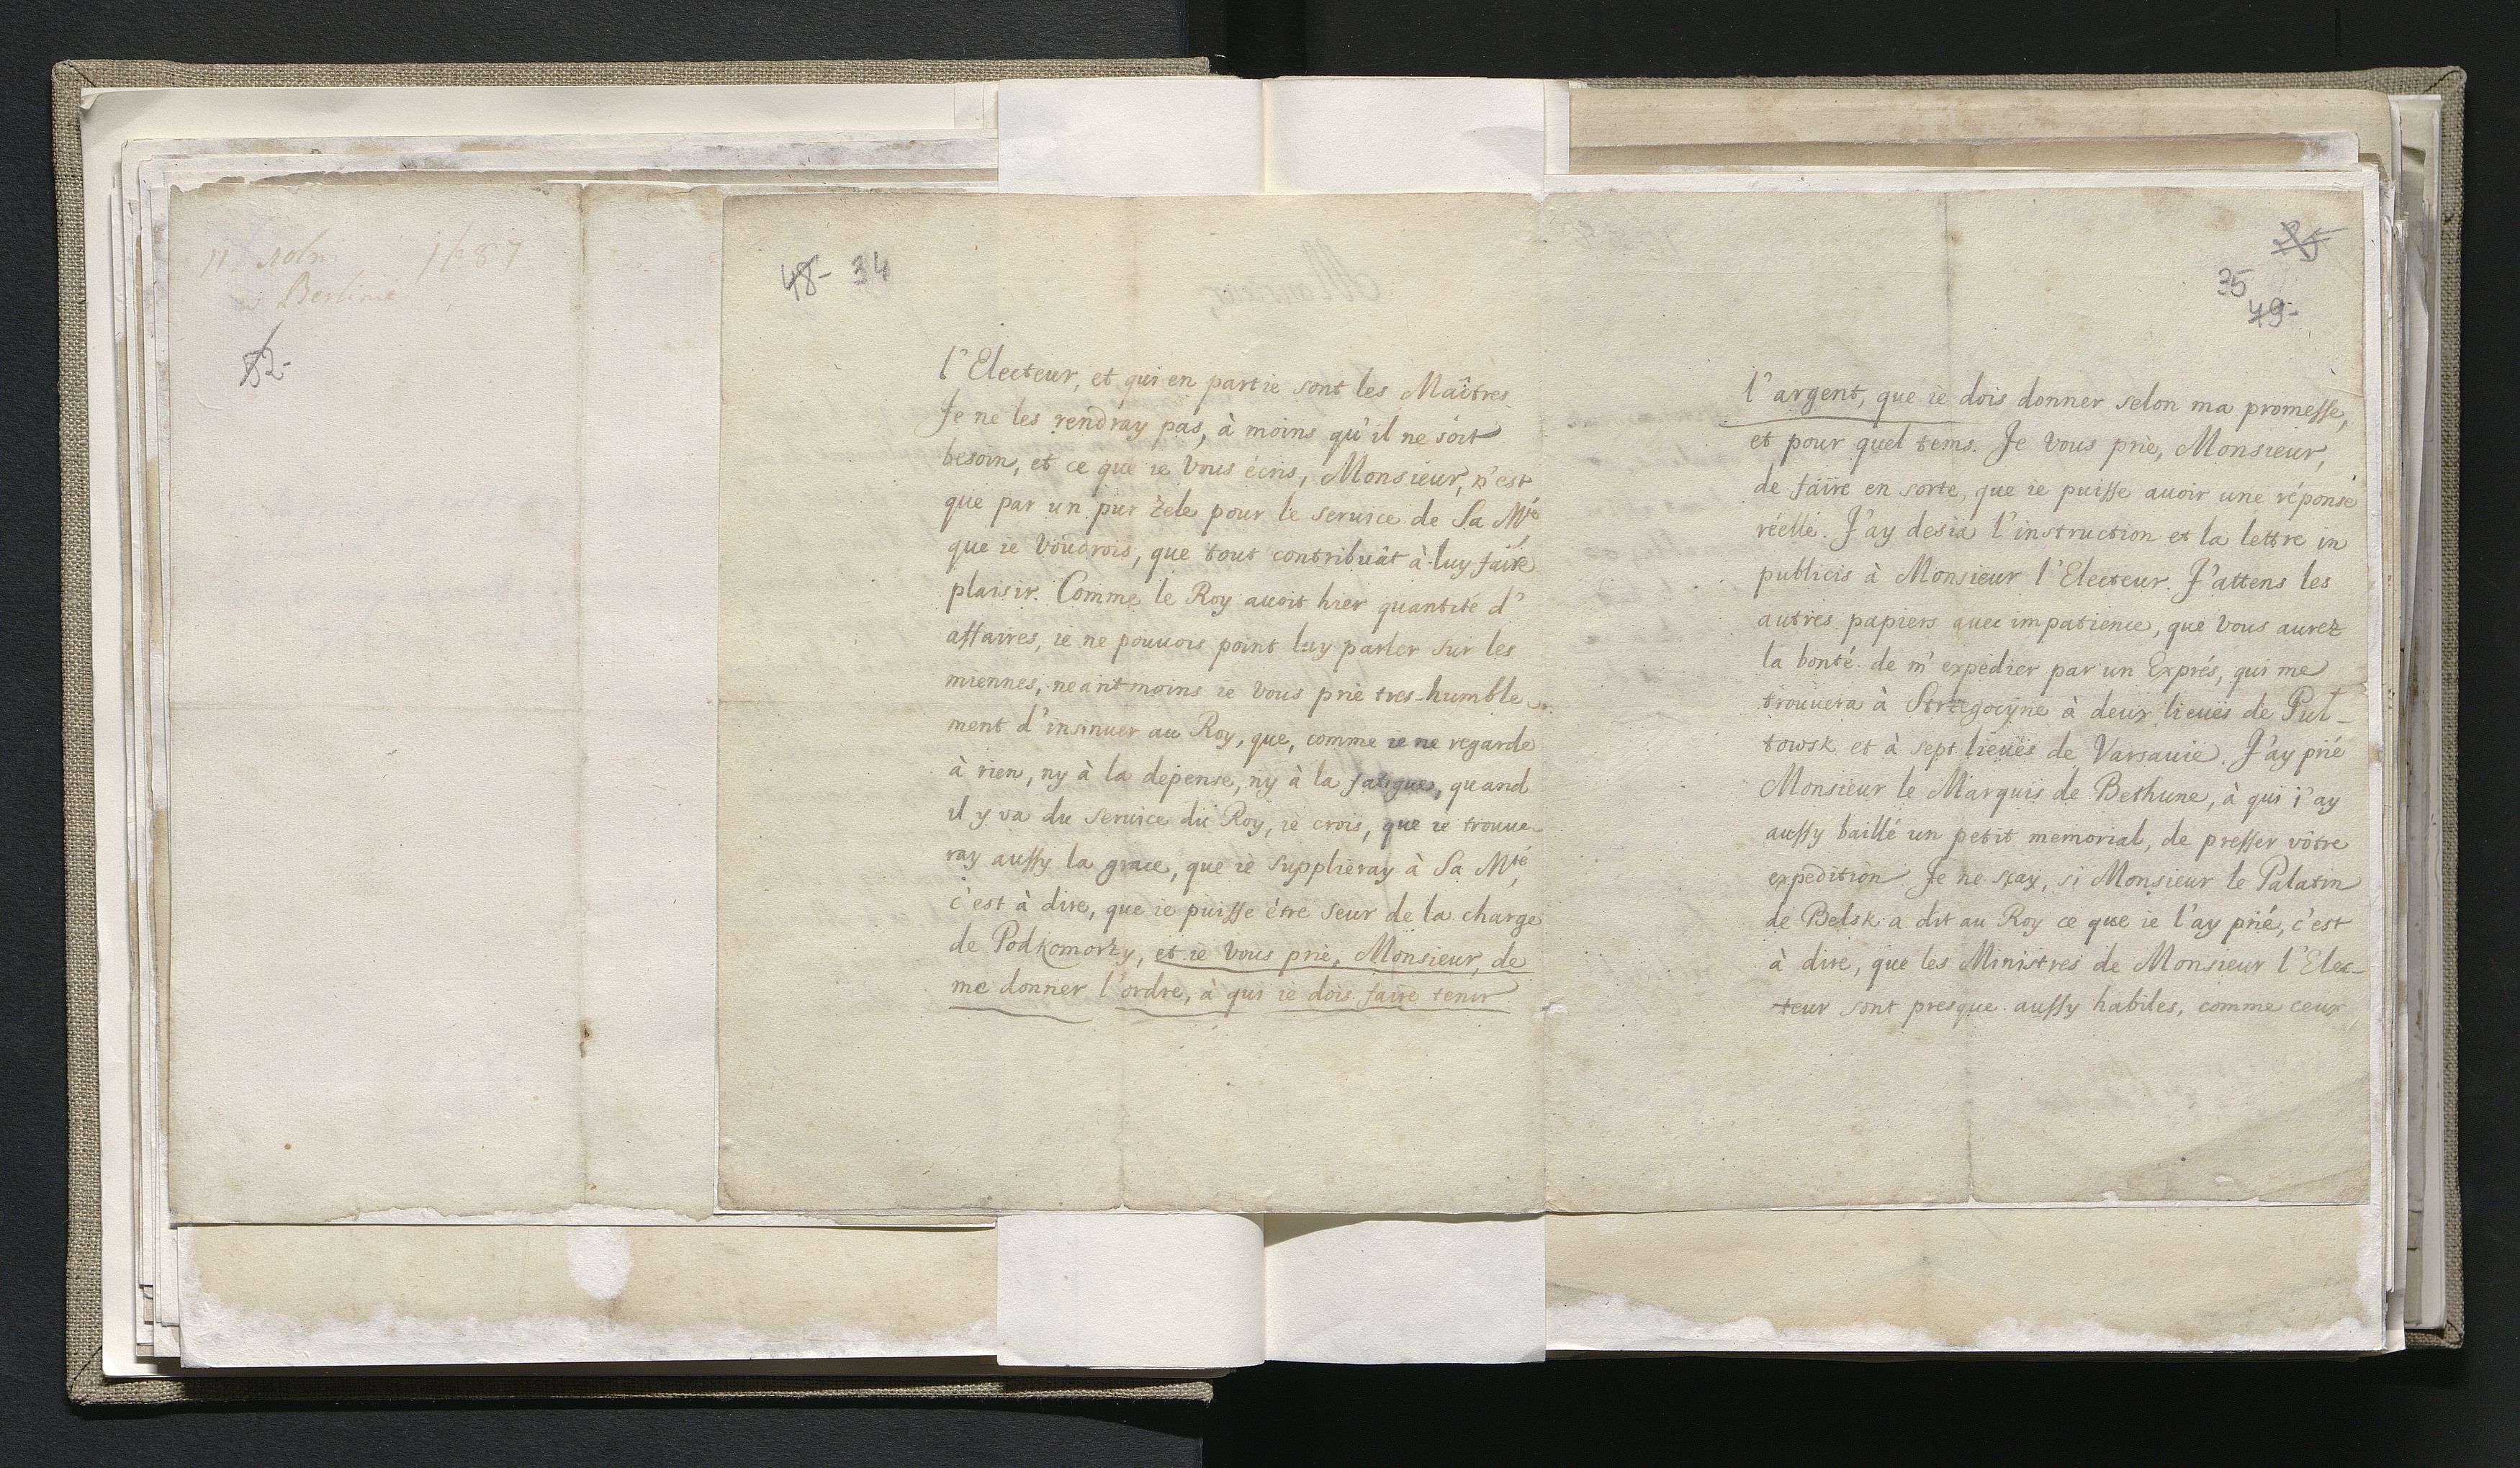 1687
Berline
52-
48- 34
l'Electeur, et qui en partie sont les Maîtres
Je ne les rendray pas, à moins qu'il ne soit
besoin, et ce que ie Vous écris, Monsieur, n'est
que par un pur Zele pour le seruice de Sa Mté
que ie Voudrois, que tout contribuât à luy faire
plaisir. Comme le Roy auoit hier quantité d'
affaires, ie ne pouuois point luy parler sur les
miennes, neantmoins ie Vous prie tres-humble
ment d'insinuer au Roy, que, comme ie ne regarde
à rien, ny à la depense, ny à la fatigue, quand
il y va du seruice du Roy, ie crois, que ie trouue
ray aussy la grace, que ie supplieray à Sa Mté,
c'est à dire, que ie puisse étre seur de la charge
de Podkomorzy, et ie Vous prie, Monsieur, de
me donner l'ordre, à qui ie dois faire tenir
25
35
49-
l'argent, que ie dois donner selon ma promesse,
et pour quel tems. Je Vous prie, Monsieur,
de faire en sorte, que ie puisse auoir une réponse
réelle. J'ay desia l'instruction et la lettre in
publicis à Monsieur l'Electeur. J'attens les
autres papiers auec impatience, que Vous aurez
la bonté de m'expedier par un Exprés, qui me
trouuera à Strzegocyne à deux lieues de Pul-
towsk et à sept lieues de Varsauie. J'ay prié
Monsieur le Marquis de Bethune, à qui i'ay
aussy baillé un petit memorial, de presser vôtre
expedition. Je ne sçay, si Monsieur le Palatin
de Belsk a dit au Roy ce que ie l'ay prié, c'est
à dire, que les Ministres de Monsieur l'Elec-
teur sont presque aussy habiles, comme ceux